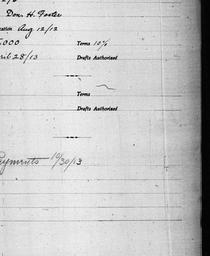 Don. H. Foster
Aug 12/12
000 Terms 10%
28/13 Drafts Authorised
Terms
Drafts Authorised
Payments 10/30/13